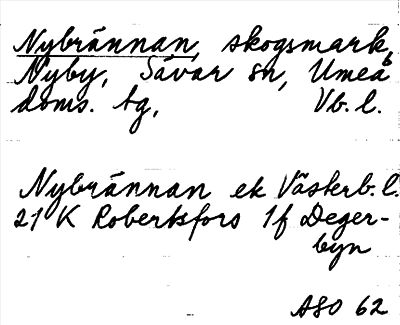 Nybrännan, skogsmark,
Nyby, Sävar sn, Umeå
doms. tg, Vb. l.
Nybrännan ek Västerb. l.
21 K Robertsfors 1f Deger-
byn
ASO 62